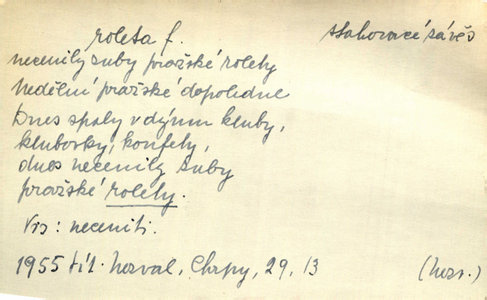 roleta f. stahovací závěs
necenily zuby pražské rolety
Nedělní pražské dopoledne
Dnes spaly v dýmu kluby,
klubovky, konfety,
dnes necenily zuby
pražské rolety.
Viz: receniti.
1955 tit. Nezval, Chrpy, 29, 13 (Nezv.)